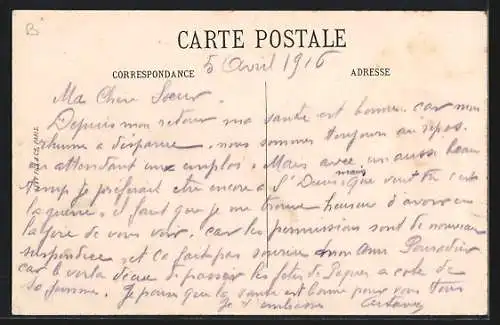 B
CARTE POSTALE
CORRESPONDANCE
5 Avril 1916
ADRESSE
Ma Chere Soeur.
Depuis mon retour ma santé est bonne car mon
rhume a disparue, nous sommes toujours au repos.
en attendant un emplois. Mais avec un aussi beau
temp je preferait etre encore a St Denis, mais que veut tu c'est
la guerre. il faut que je me trouve heureux d'avoir eu
la joie de vous voir, car les permissions sont de nouveau
suspendue, et ca fait pas sourire mon ami
car le voila decue de passer les fetes de Paques a cote de
sa femme. Je pense que la santé est bonne pour vous tous
Je t'embrasse Gustave